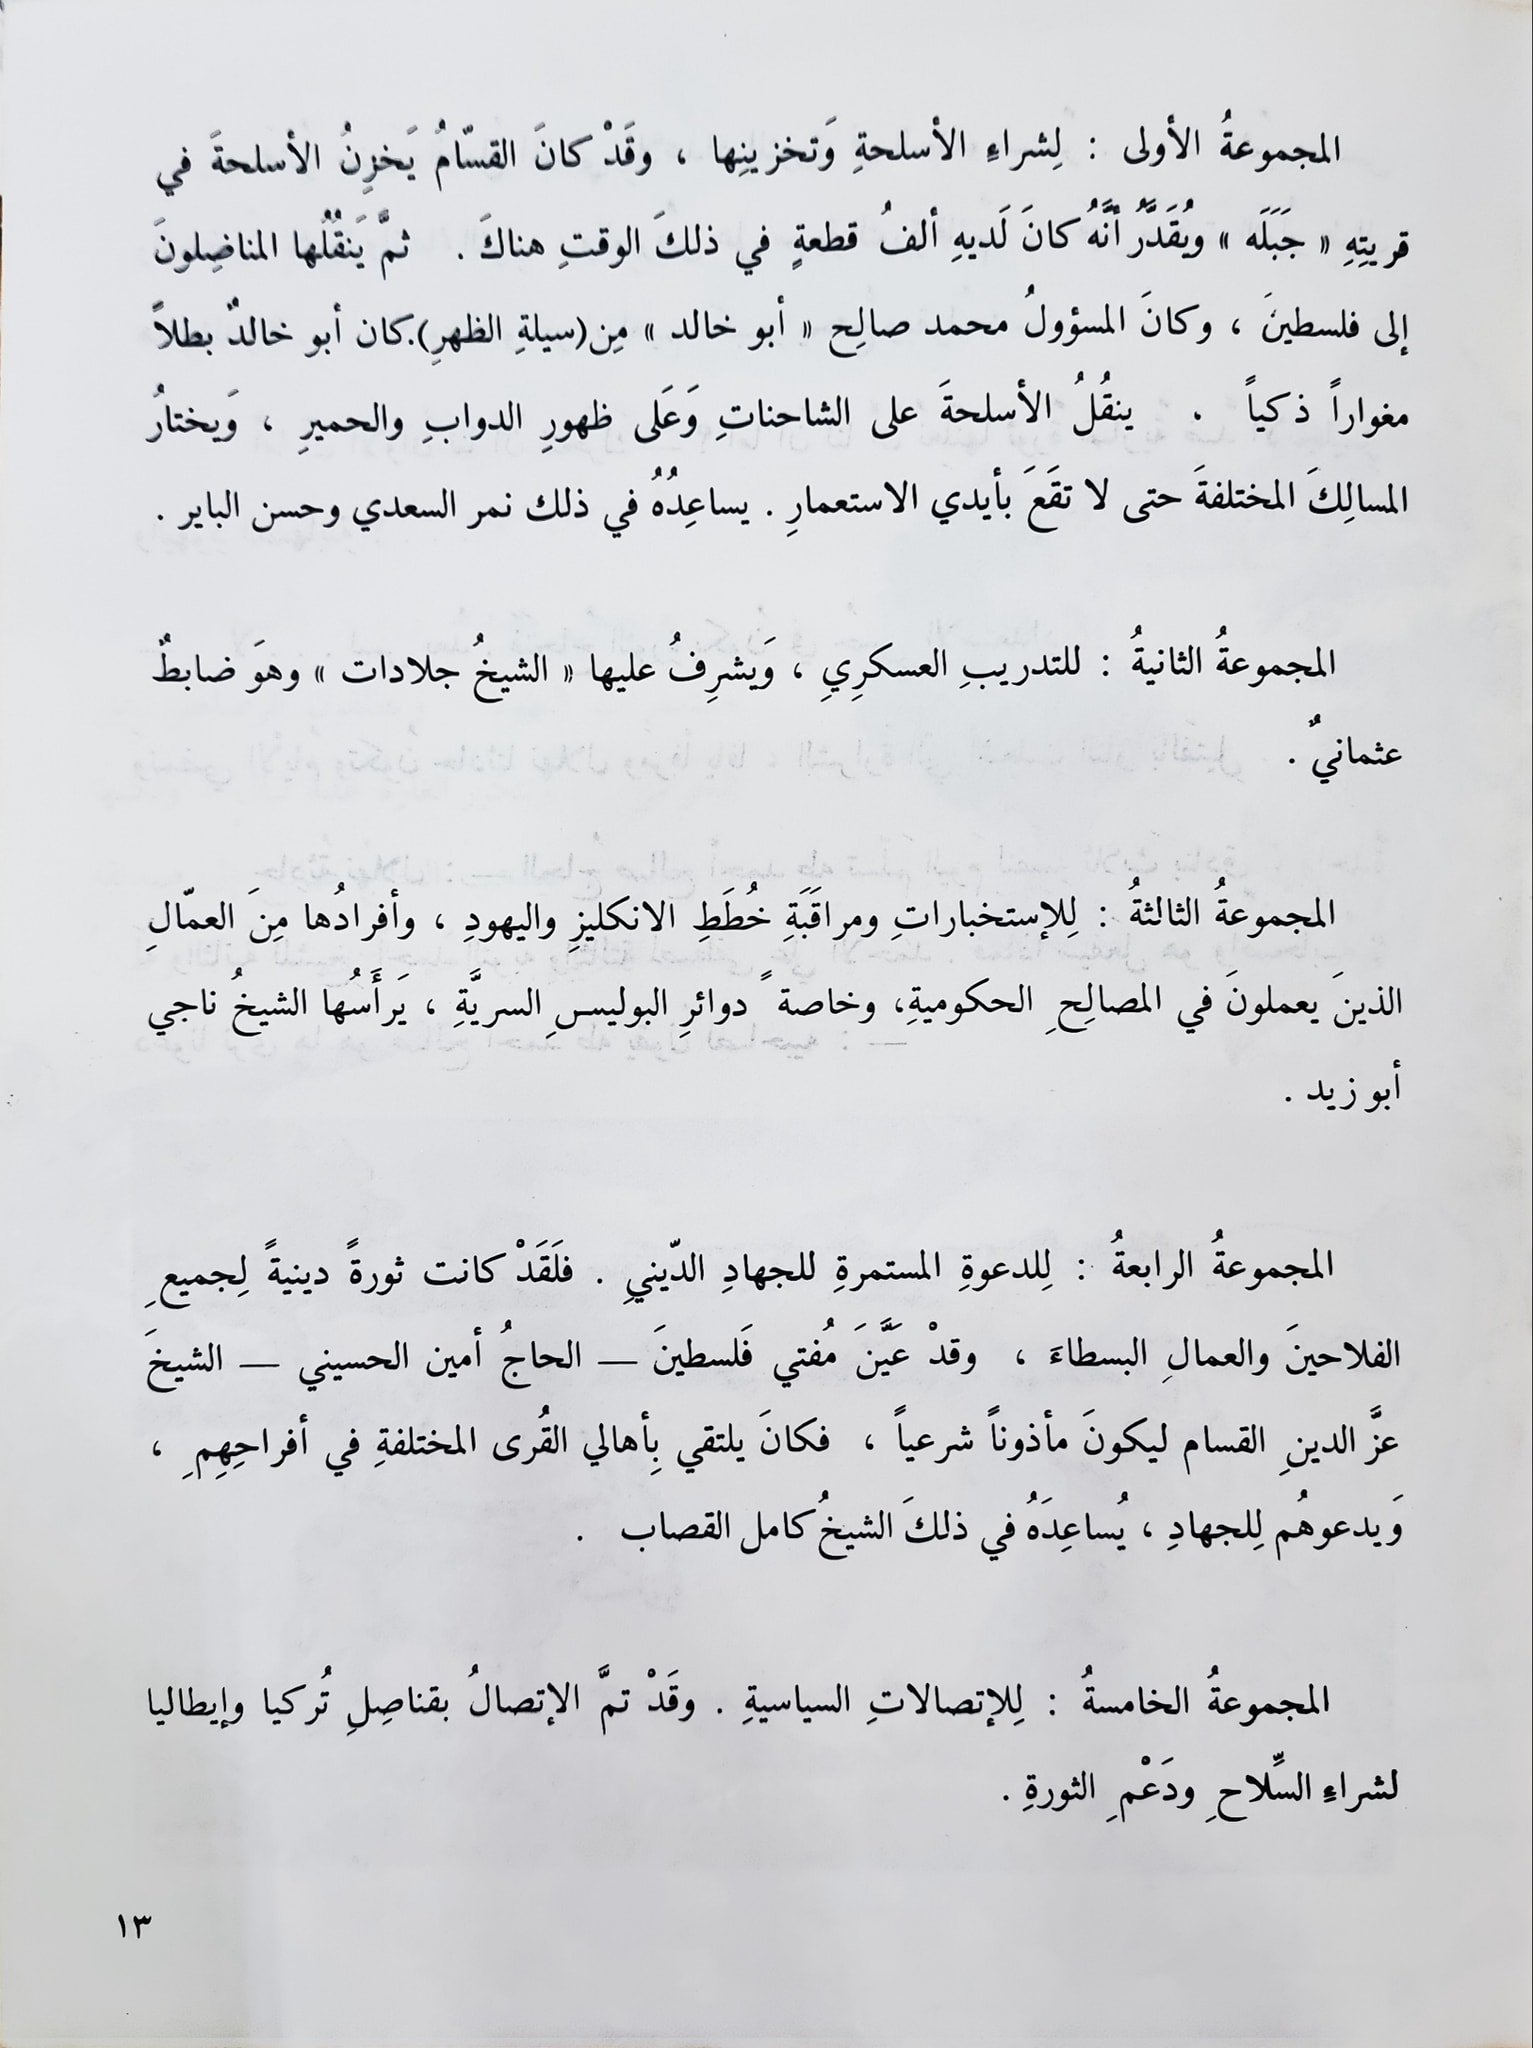 المجموعةُ الأولى : لِشراءِ الأسلحةِ وَتخزينِها ، وقَدْ كانَ القسّامُ يَخزِنُ الأسلحةَ في
قريتِهِ « جَبَلَه » ويُقَدَّرُ أنَّهُ كانَ لَديهِ ألفُ قطعةٍ في ذلكَ الوقتِ هناكَ . ثمَّ يَنقُلُها المناضِلونَ
إلى فلسطينَ ، وكانَ المسؤولُ محمد صالِح « أبو خالد » مِن(سيلةِ الظهرِ).كان أبو خالدٌ بطلاً
مغواراً ذكياً . ينقُلُ الأسلحةَ على الشاحناتِ وَعَلى ظهورِ الدوابِ والحميرِ ، وَيختارُ
المسالِكَ المختلفةَ حتى لا تقَعَ بأيدي الاستعمارِ . يساعِدُهُ في ذلك نمر السعدي وحسن الباير .
المجموعةُ الثانيةُ : للتدريبِ العسكرِيِ ، وَيشرِفُ عليها « الشيخُ جلادات » وهوَ ضابطٌ
عثمانيٌ .
المجموعةُ الثالثةُ : لِلإستخباراتِ ومراقَبَةِ خُطَطِ الانكليزِ واليهودِ ، وأفرادُها مِنَ العمّالِ
الذينَ يعملونَ في المصالِحِ الحكوميةِ، وخاصةً دوائرِ البوليسِ السريَّةِ ، يَرأَسُها الشيخُ ناجي
أبو زيد .
المجموعةُ الرابعةُ : لِلدعوةِ المستمرةِ للجهادِ الدّينيِ . فلَقَدْ كانت ثورةً دينيةً لِجميعِ
الفلاحينَ والعمالِ البسطاءَ ، وقدْ عَيَّنَ مُفتي فَلسطينَ — الحاجُ أمين الحسيني — الشيخَ
عزَّ الدينِ القسام ليكونَ مأذوناً شرعياً ، فكانَ يلتقي بِأهالي القُرى المختلفةِ في أفراحِهِمِ ،
وَيدعوهُم لِلجهادِ ، يُساعِدَهُ في ذلكَ الشيخُ كامل القصاب .
المجموعةُ الخامسةُ : لِلإتصالاتِ السياسيةِ . وقَدْ تمَّ الإتصالُ بقناصِلِ تُركيا وإيطاليا
لشراءِ السِّلاحِ ودَعْمِ الثورةِ .
١٣